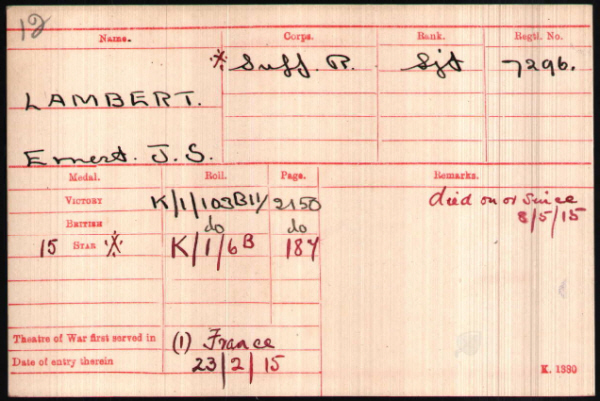 12
Name. Corps. Rank. Regtl. No.
※ Suff. R. Sjt 7296.
LAMBERT.
Ernest. J. S.
Medal. Roll. Page. Remarks.
VICTORY K/1/103B11/ 2150 died on or since
BRITISH do do 8/5/15
15 STAR ※ K/1/6B 187
Theatre of War first served in (1) France
Date of entry therein 23/2/15
K. 1380